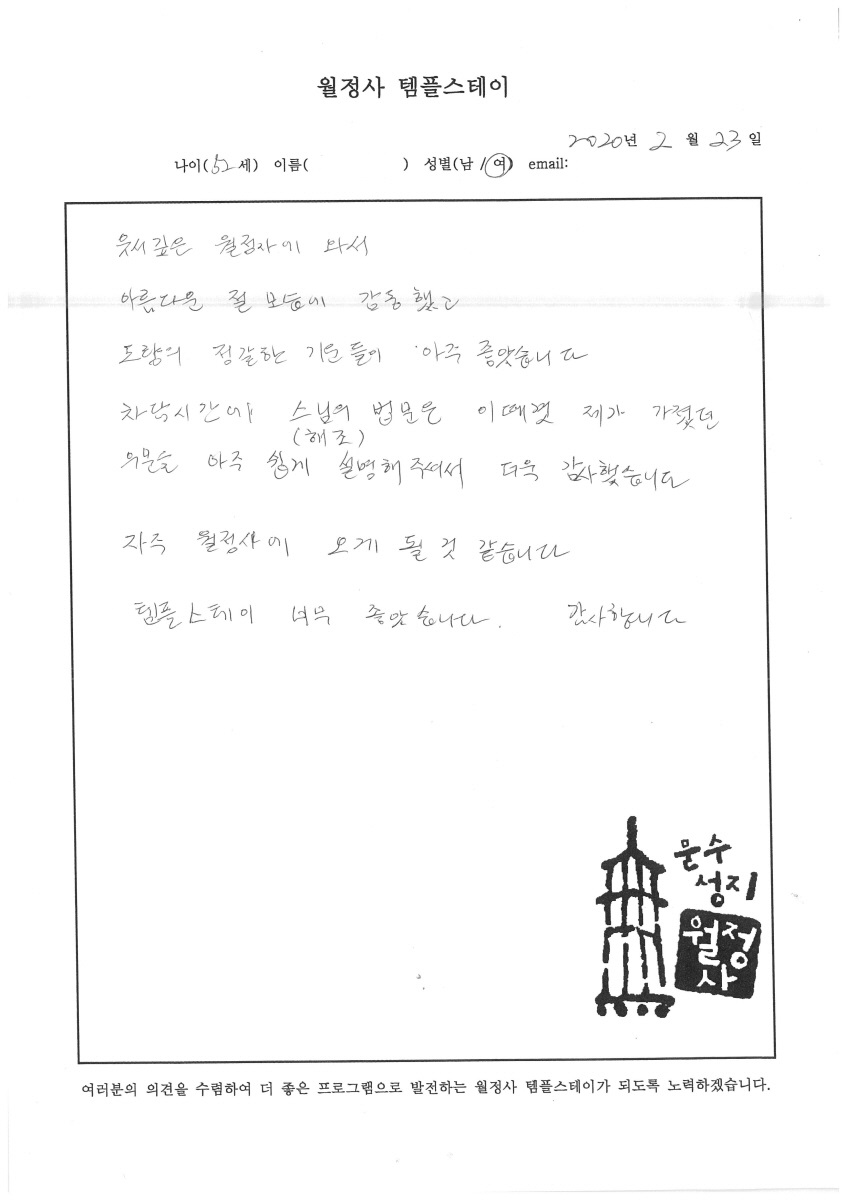 월정사 템플스테이
2020년 2 월 23일
나이(52세) 이름( ) 성별(남 /여) email:
웃서깊은 월정사에 와서
아름다운 절 모습에 감동했고
도량의 정갈한 기운들이 아주 좋았습니다
차담시간에 스님의 법문은 이때껏 제가 가졌던
(해조)
의문을 아주 쉽게 설명해주셔서 더욱 감사했습니다
자주 월정사에 오게 될 것 같습니다
템플스테이 너무 좋았습니다. 감사합니다
문수
성지
월정
사
여러분의 의견을 수렴하여 더 좋은 프로그램으로 발전하는 월정사 템플스테이가 되도록 노력하겠습니다.